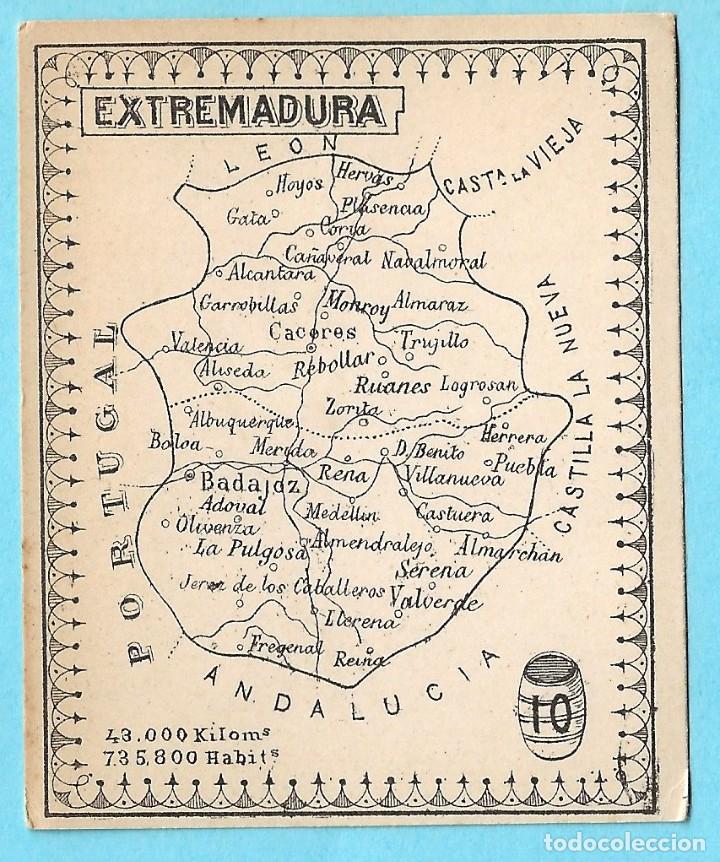 EXTREMADURA
LEON
CASTª LA VIEJA
Hoyos
Hervás
Gata
Plasencia
Coria
Cañaveral
Navalmoral
Alcantara
Garrobillas
Monroy
Almaraz
CASTILLA LA NUEVA
Caceres
Valencia
Trujillo
Rebollar
Aliseda
Ruanes
Logrosan
PORTUGAL
Zorita
Albuquerque
Herrera
Boloa
Merida
D. Benito
Rena
Puebla
Badajoz
Villanueva
Adoval
Medellin
Castuera
Olivenza
La Pulgosa
Almendralejo
Almarchán
Serena
Jerez de los Caballeros
Valverde
Llerena
Fregenal
Reina
ANDALUCIA
10
43.000 Kilomˢ
735,800 Habitˢ
todocoleccion